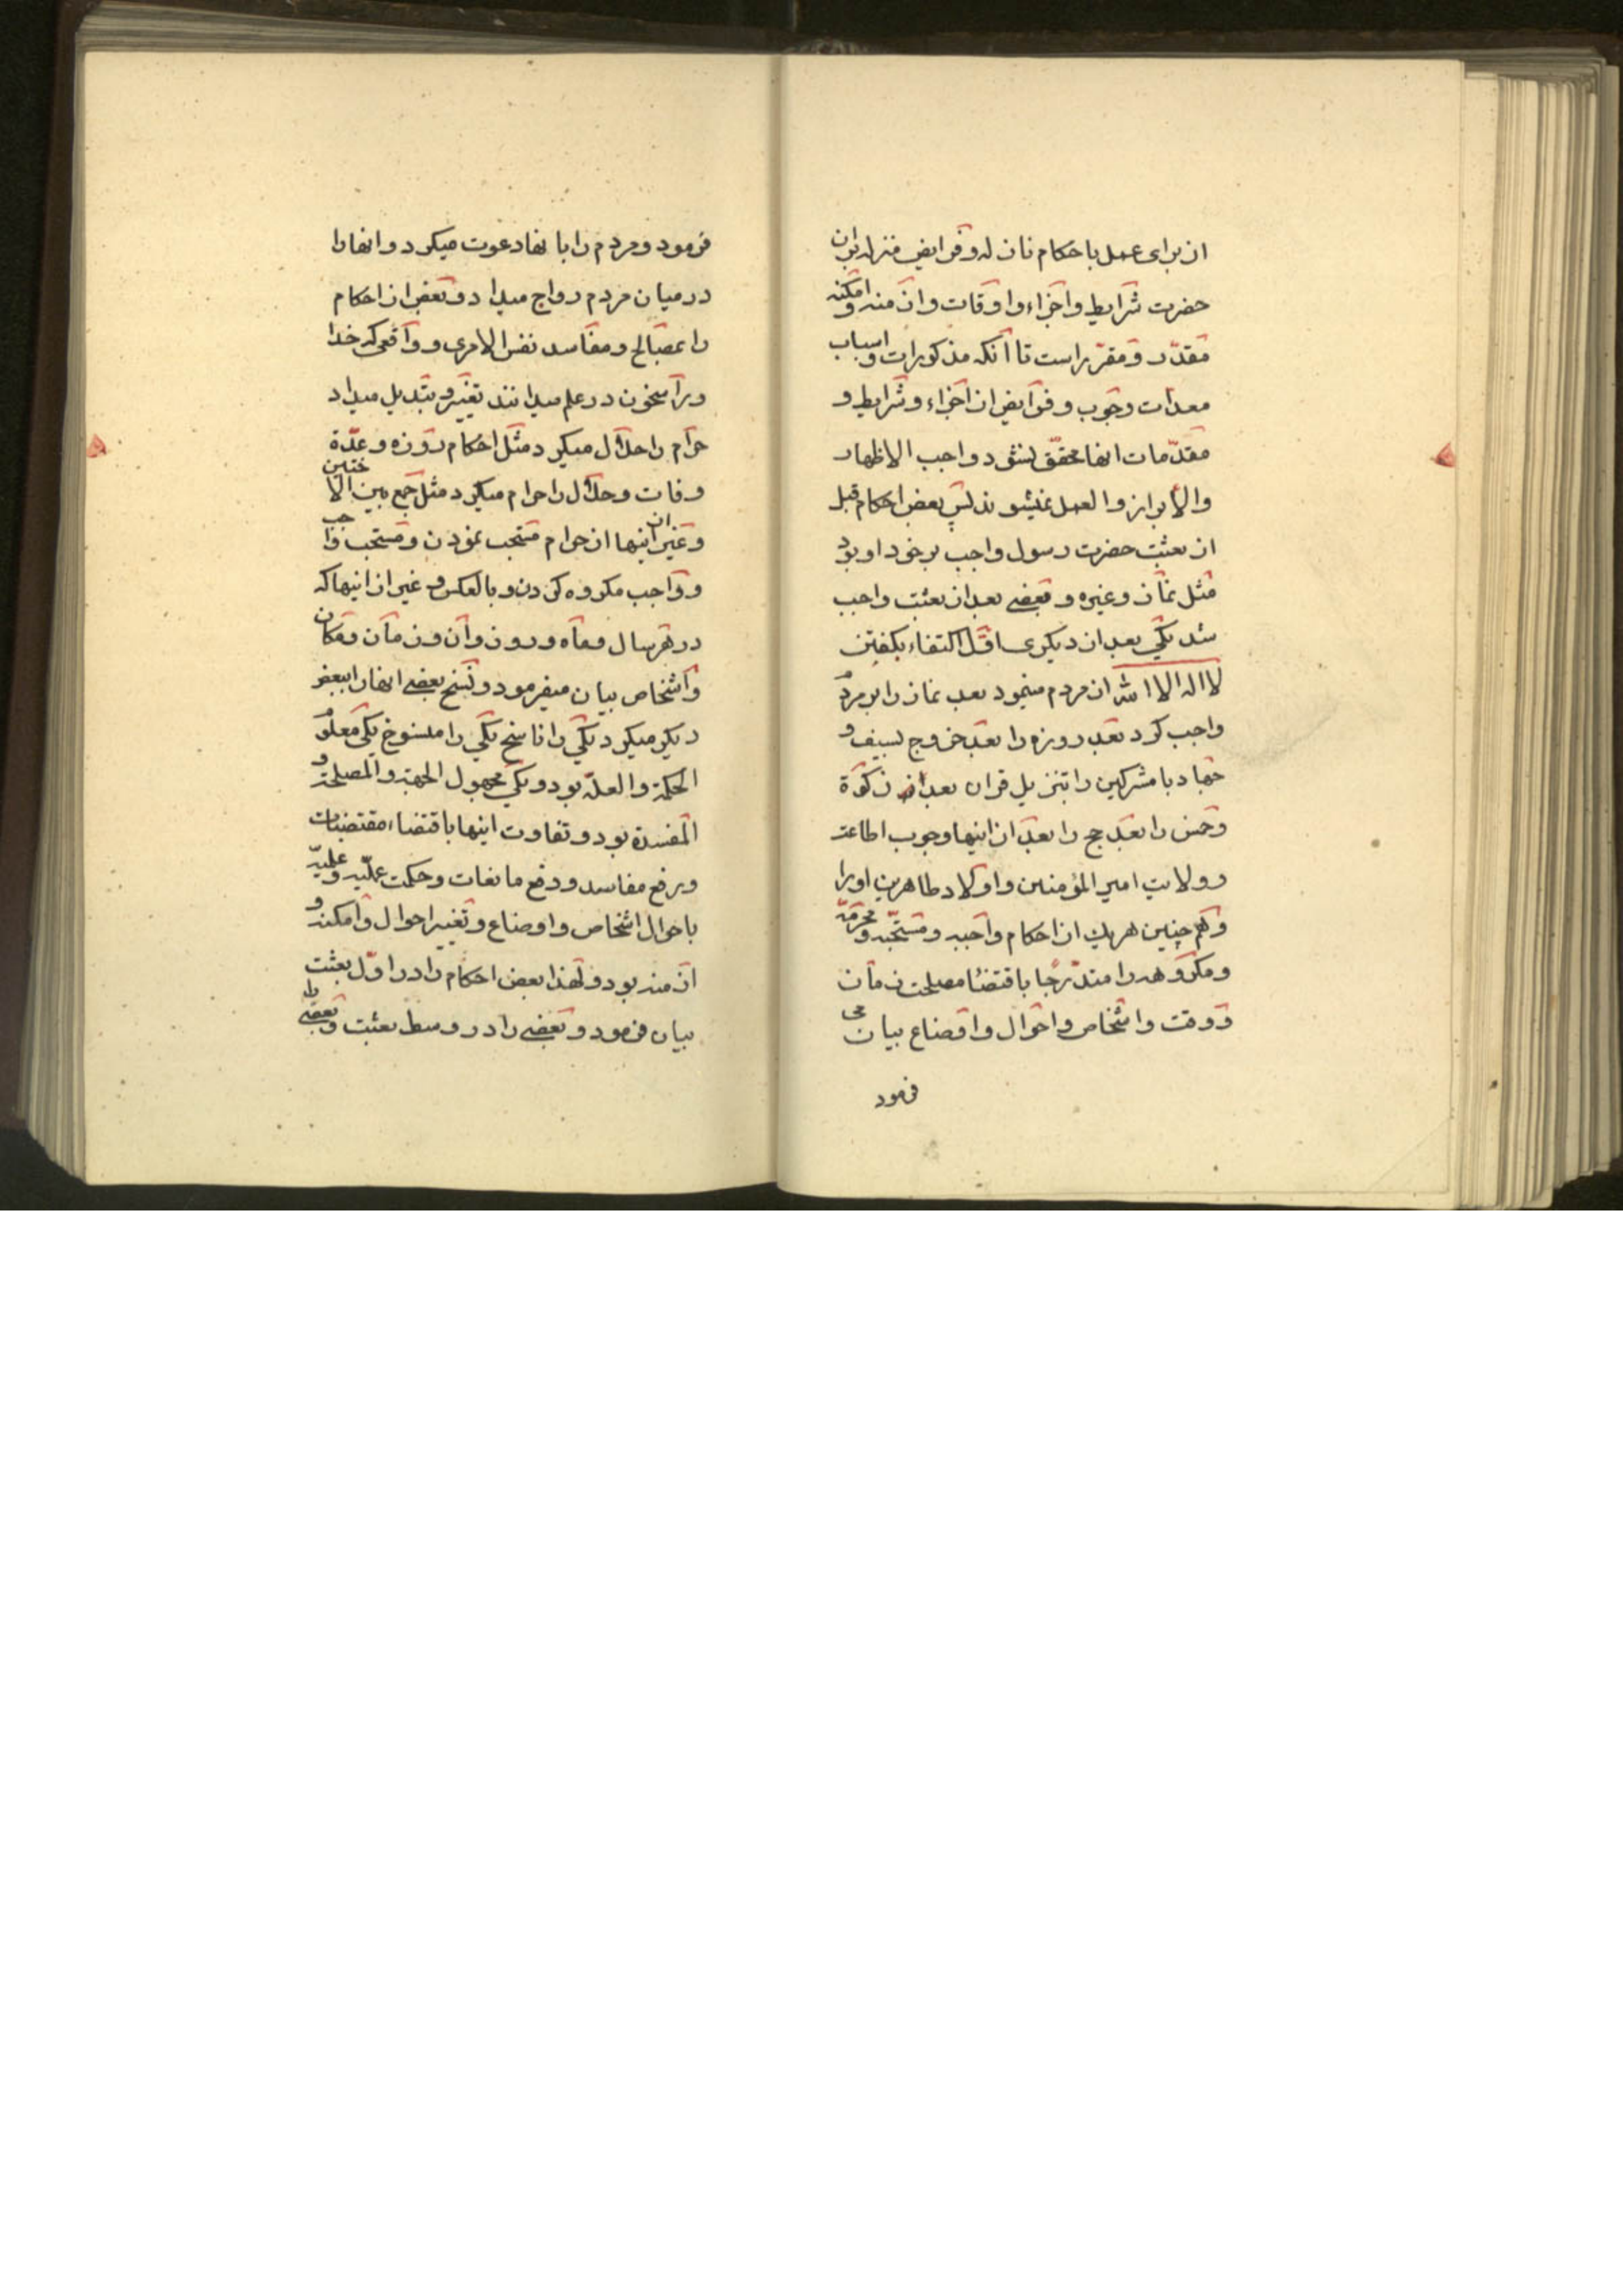 از برای عمل باحکام نازله و فرایض منزله بران
حضرت شرایط و اجزاء و اوقات و ازمنه و امکنه
مقدّر و مقرّر است تا آنکه مذکورات و اسباب
معدات وجوب و فرایض از اجزاء و شرایط و
مقدّمات انها محقق نشود واجب الاظهار
والابراز والعمل نمیشوند پس بعض احکام قبل
از بعثت حضرت رسول واجب بر خود او بود
مثل نماز و غیره و بعضی بعد از بعثت واجب
شد یکی بعد از دیکری اوّل اکتفاء بکفتن
لا اله الا الله از مردم مینمود بعد نماز را بر مردم
واجب کرد بعد روزه را بعد خروج بسیف و
جهاد با مشرکین را بتنزیل قران بعد از زکوة
و خمس را بعد حج را بعد از اینها وجوب اطاعت
و ولایت امیر المؤمنین و اولاد طاهرین او را
و هم چنین هر یک از احکام واجبه و مستحبّه و محرمّه
و مکروهه را متدرّجا باقتضا مصلحت زمان
و وقت و اشخاص و احوال و اوضاع بیان می
فرمود
فرمود و مردم را بانها دعوت میکرد و انها را
در میان مردم رواج میداد و بعض از احکام
را بمصالح و مفاسد نفس الامری و واقعی که خدا
و راسخون در علم میدانند تغییر و تبدیل میداد
حرام را حلال میکرد مثل احکام روزه و عدّة
وفات و حلال را حرام میکرد مثل جمع بین الاختین
و غیر از اینها از حرام مستحب نمودن و مستحب واجب
و واجب مکروه کردن و بالعکس و غیر از اینها که
در هر سال و ماه و روز و آن و زمان و مکان
و اشخاص بیان میفرمود و نسخ بعضی انها را ببعض
دیکر میکرد یکی را ناسخ یکی را منسوخ یکی معلوم
الحکمة والعلّة بود و یکی مجهول الجهة والمصلحة و
المفسدة بود و تفاوت اینها باقتضاء مقتضیات
و رفع مفاسد و دفع مانعات و حکمت عملّیه و علمیّه
باحوال اشخاص و اوضاع و تغییر احوال و امکنه و
ازمنه بود و لهذا بعض احکام را در اوّل بعثت
بیان فرمود و بعضی را در وسط بعثت و بعضی را